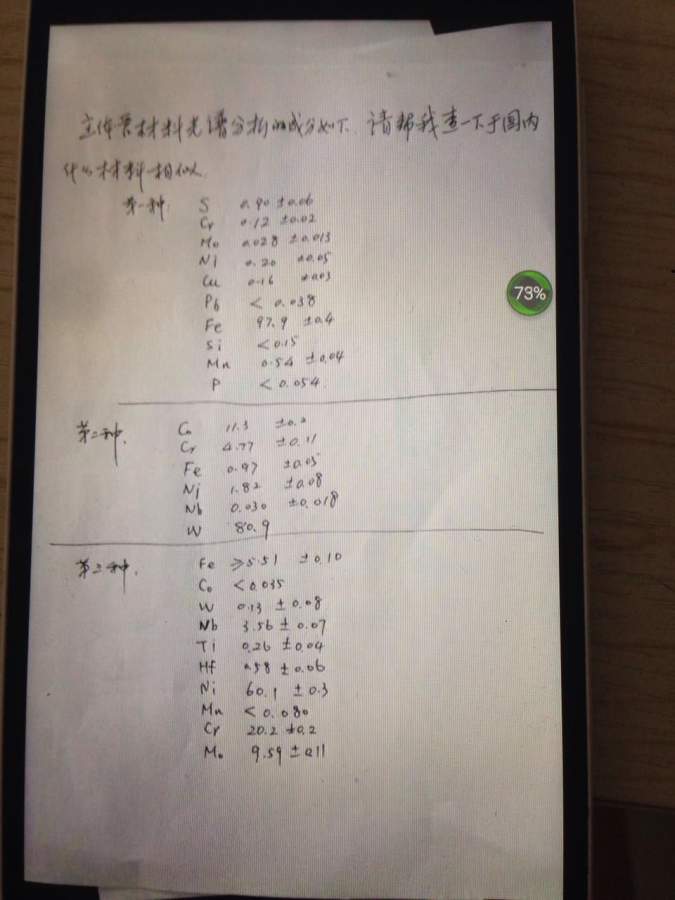 主体管材料光谱分析的成分如下,请帮我查一下于国内
什么材料相似.
第一种: S 0.90 ±0.06
Cr 0.12 ±0.02
Mo 0.028 ±0.013
Ni 0.20 ±0.05
Cu 0.16 ±0.03
Pb < 0.038
Fe 97.9 ±0.4
Si <0.15
Mn 0.54 ±0.04
P <0.054
73%
第二种. Co 11.3 ±0.2
Cr 4.77 ±0.11
Fe 0.97 ±0.05
Ni 1.82 ±0.08
Nb 0.030 ±0.018
W 80.9
第三种. Fe ≥5.51 ±0.10
Co <0.035
W 0.13 ±0.08
Nb 3.56 ±0.07
Ti 0.26 ±0.04
Hf 0.58 ±0.06
Ni 60.1 ±0.3
Mn <0.080
Cr 20.2 ±0.2
Mo 9.59 ±0.11